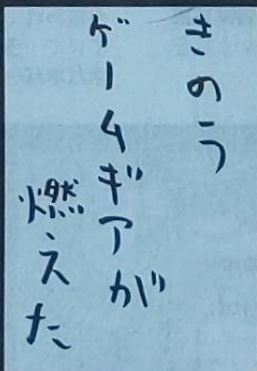 きのう
ゲームギアが
燃えた